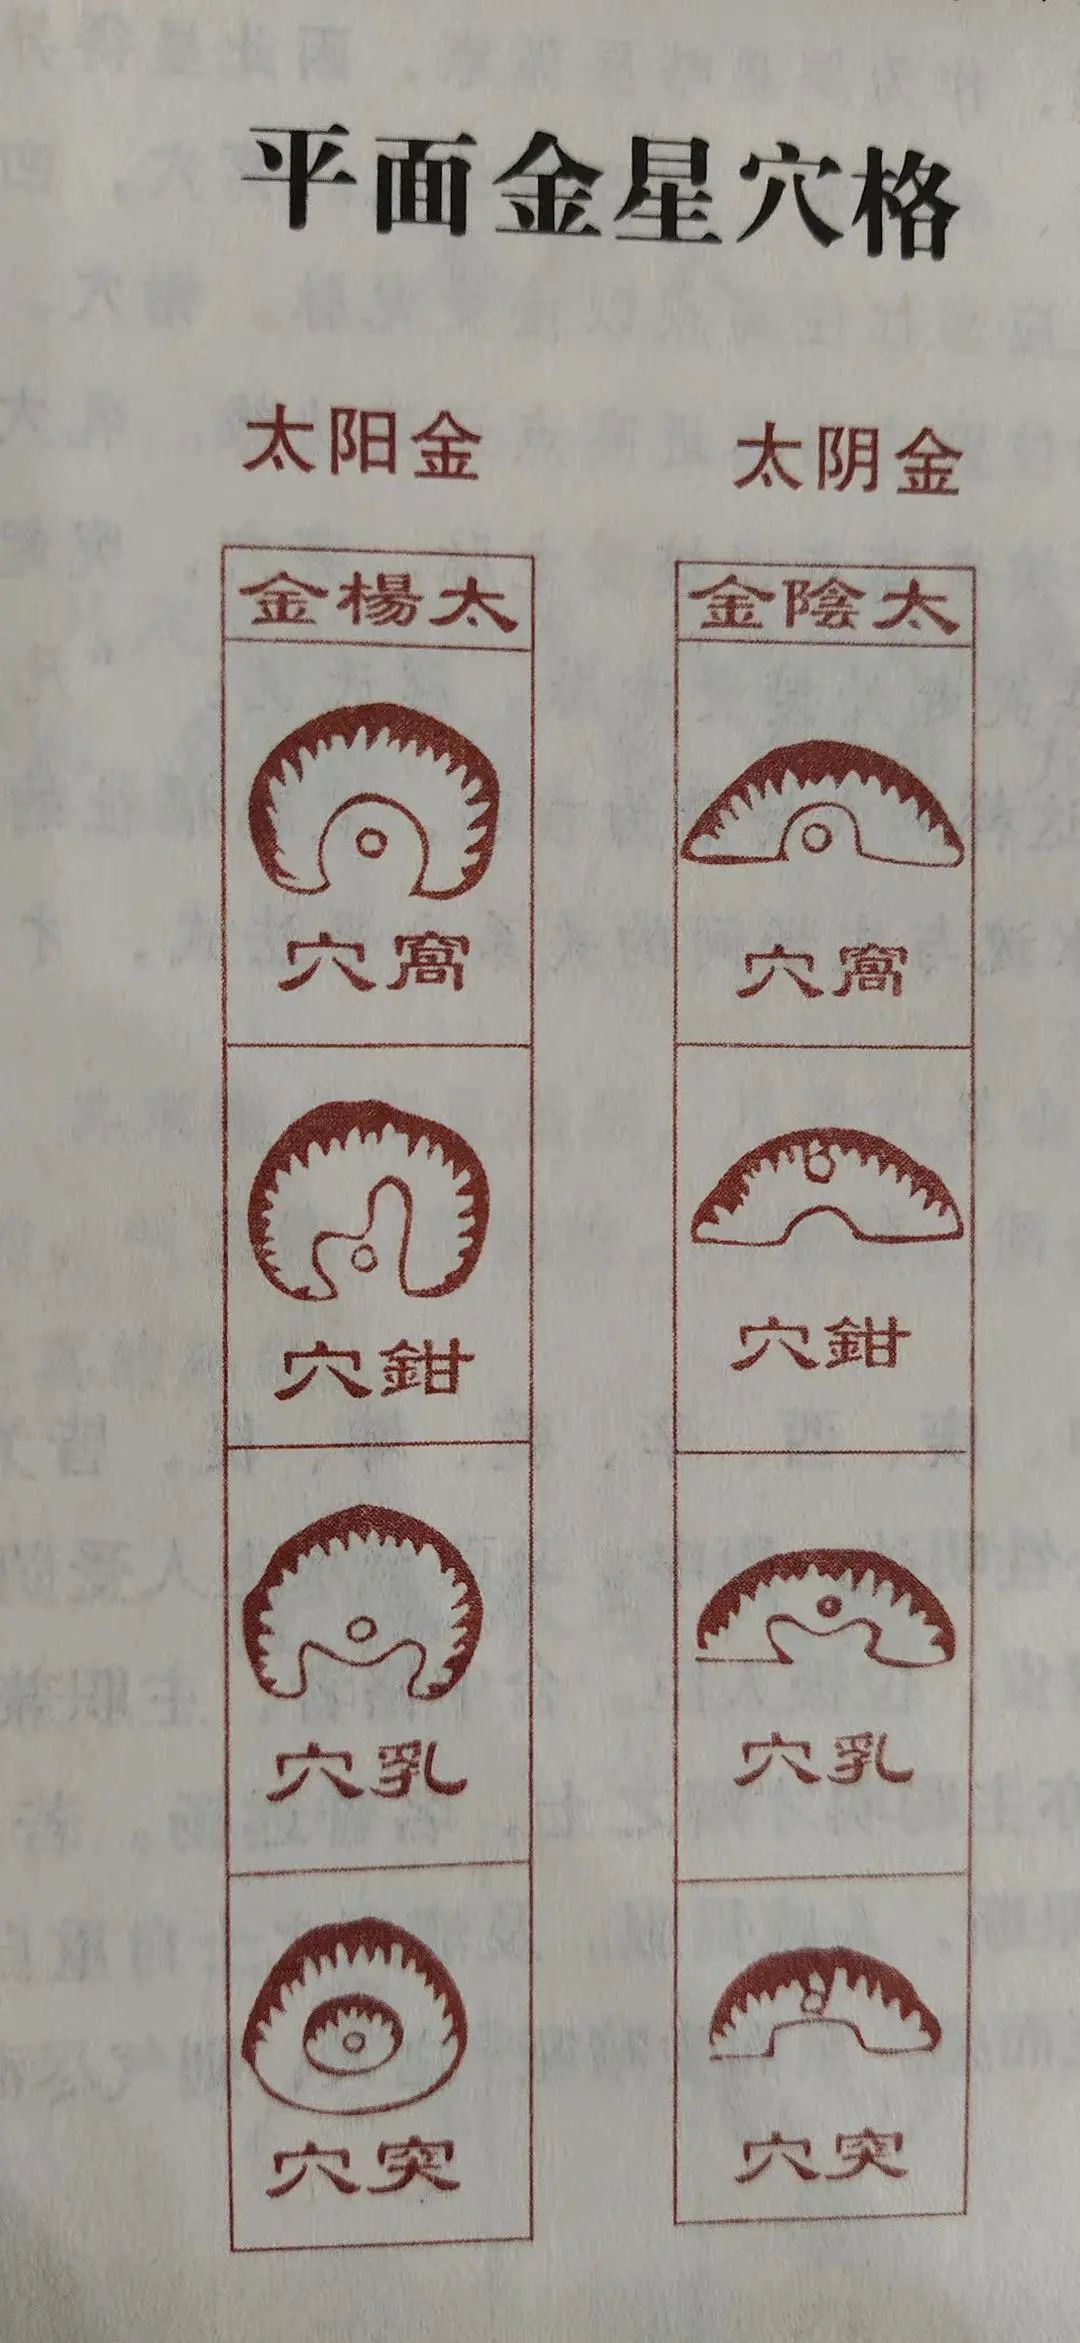 平面金星穴格
太阳金
太楊金
窩穴
鉗穴
乳穴
突穴
太阴金
太陰金
窩穴
鉗穴
乳穴
突穴